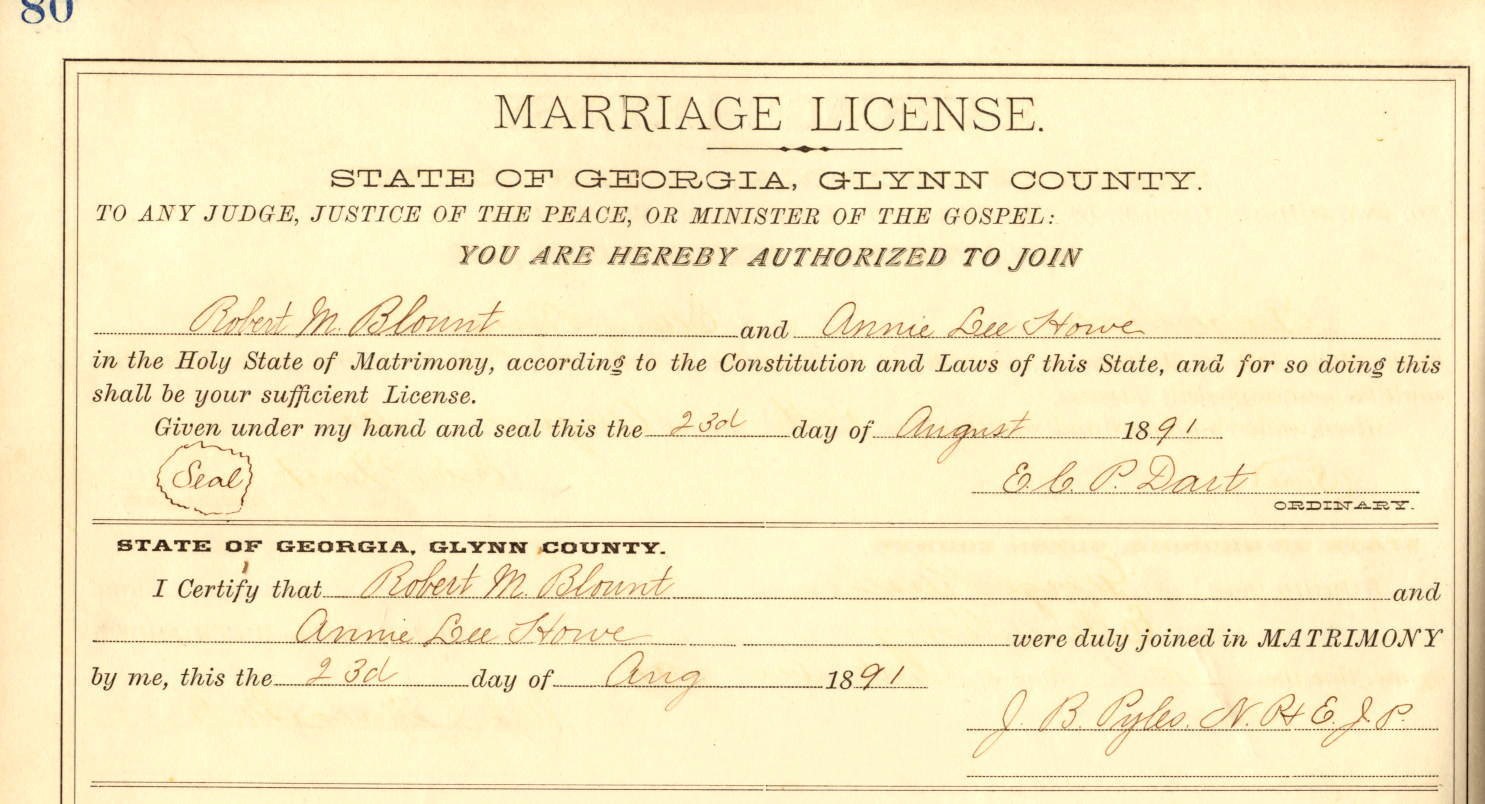 80
MARRIAGE LICENSE.
STATE OF GEORGIA, GLYNN COUNTY.
TO ANY JUDGE, JUSTICE OF THE PEACE, OR MINISTER OF THE GOSPEL:
YOU ARE HEREBY AUTHORIZED TO JOIN
Robert M. Blount and Annie Lee Howe
in the Holy State of Matrimony, according to the Constitution and Laws of this State, and for so doing this
shall be your sufficient License.
Given under my hand and seal this the 23d day of August 1891
Seal E. C. P. Dart
ORDINARY.
STATE OF GEORGIA, GLYNN COUNTY.
I Certify that Robert M. Blount and
Annie Lee Howe were duly joined in MATRIMONY
by me, this the 23d day of Aug 1891
J. B. Pyles. N. P. & E. J. P.